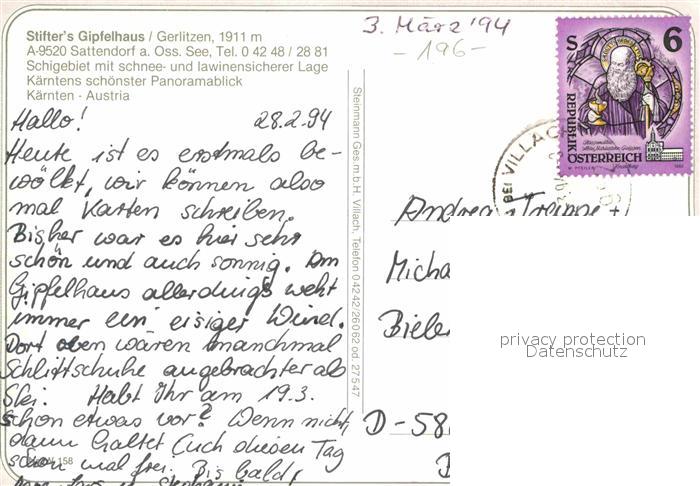 Stifter's Gipfelhaus / Gerlitzen, 1911 m
A-9520 Sattendorf a. Oss. See, Tel. 0 42 48 / 28 81
Schigebiet mit schnee- und lawinensicherer Lage
Kärntens schönster Panoramablick
Kärnten - Austria
3. März '94
- 196 -
S 6
REPUBLIK
ÖSTERREICH
BEI VILLACH
Hallo! 28.2.94
Heute ist es erstmals be-
wölkt, wir können also
mal Karten schreiben.
Bisher war es hier sehr
schön und auch sonnig. Am
Gipfelhaus allerdings weht
immer ein eisiger Wind.
Dort oben wären manchmal
Schlittschuhe angebrachter als
Ski. Habt Ihr am 19.3.
schon etwas vor? Wenn nicht,
dann haltet Euch diesen Tag
schon mal frei. Bis bald,
158
Steinmann Ges.m.b.H. Villach, Telefon 04242/26062 od. 27547
Andrea
Micha
Biele
D-58
privacy protection
Datenschutz